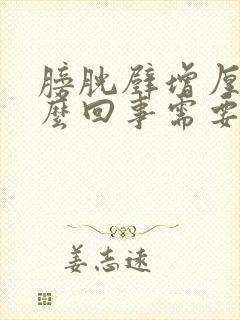 膀胱壁增厚
麽回事需要
姜志远